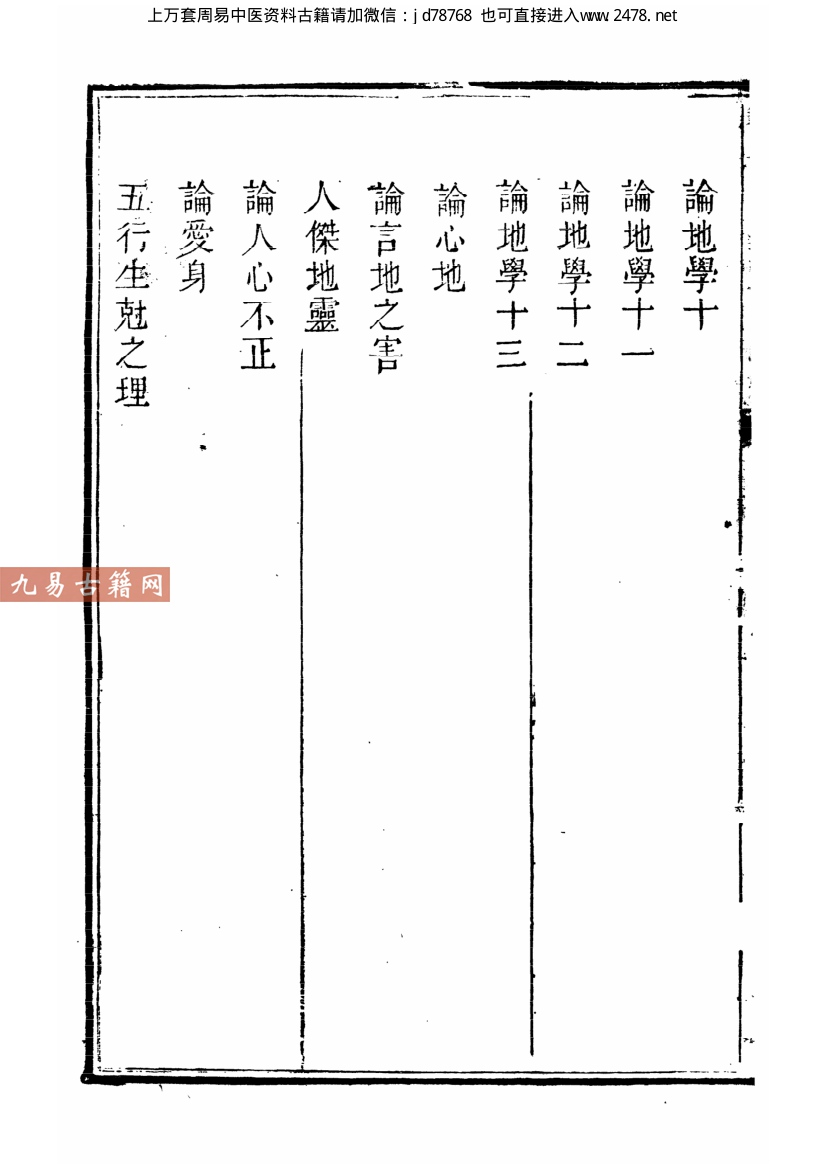 上万套周易中医资料古籍请加微信：jd78768 也可直接进入www.2478.net
論地學十
論地學十一
論地學十二
論地學十三
論心地
論言地之害
人傑地靈
論人心不正
論愛身
五行生尅之理
九易古籍网